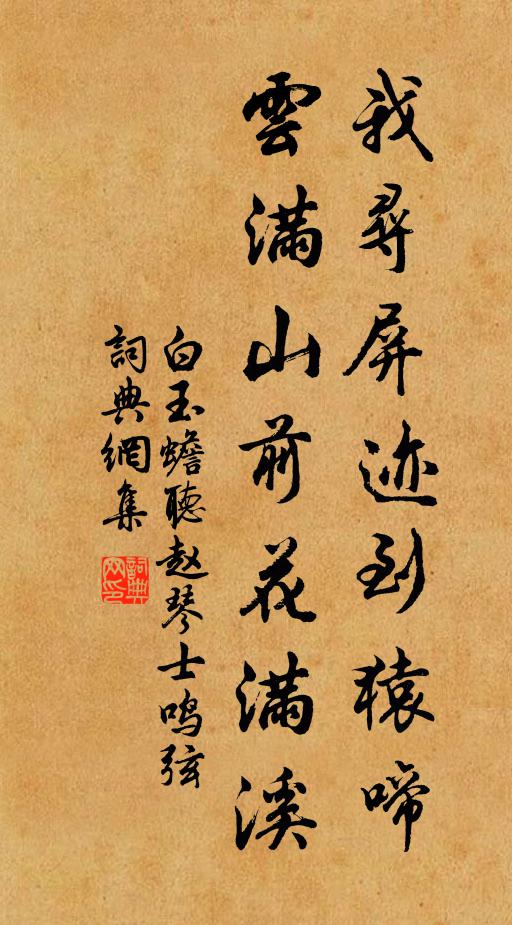 我尋屏迹到猿啼
雲滿山前花滿溪
白玉蟾聽赵琴士鸣弦
詞典網集
詞典网印